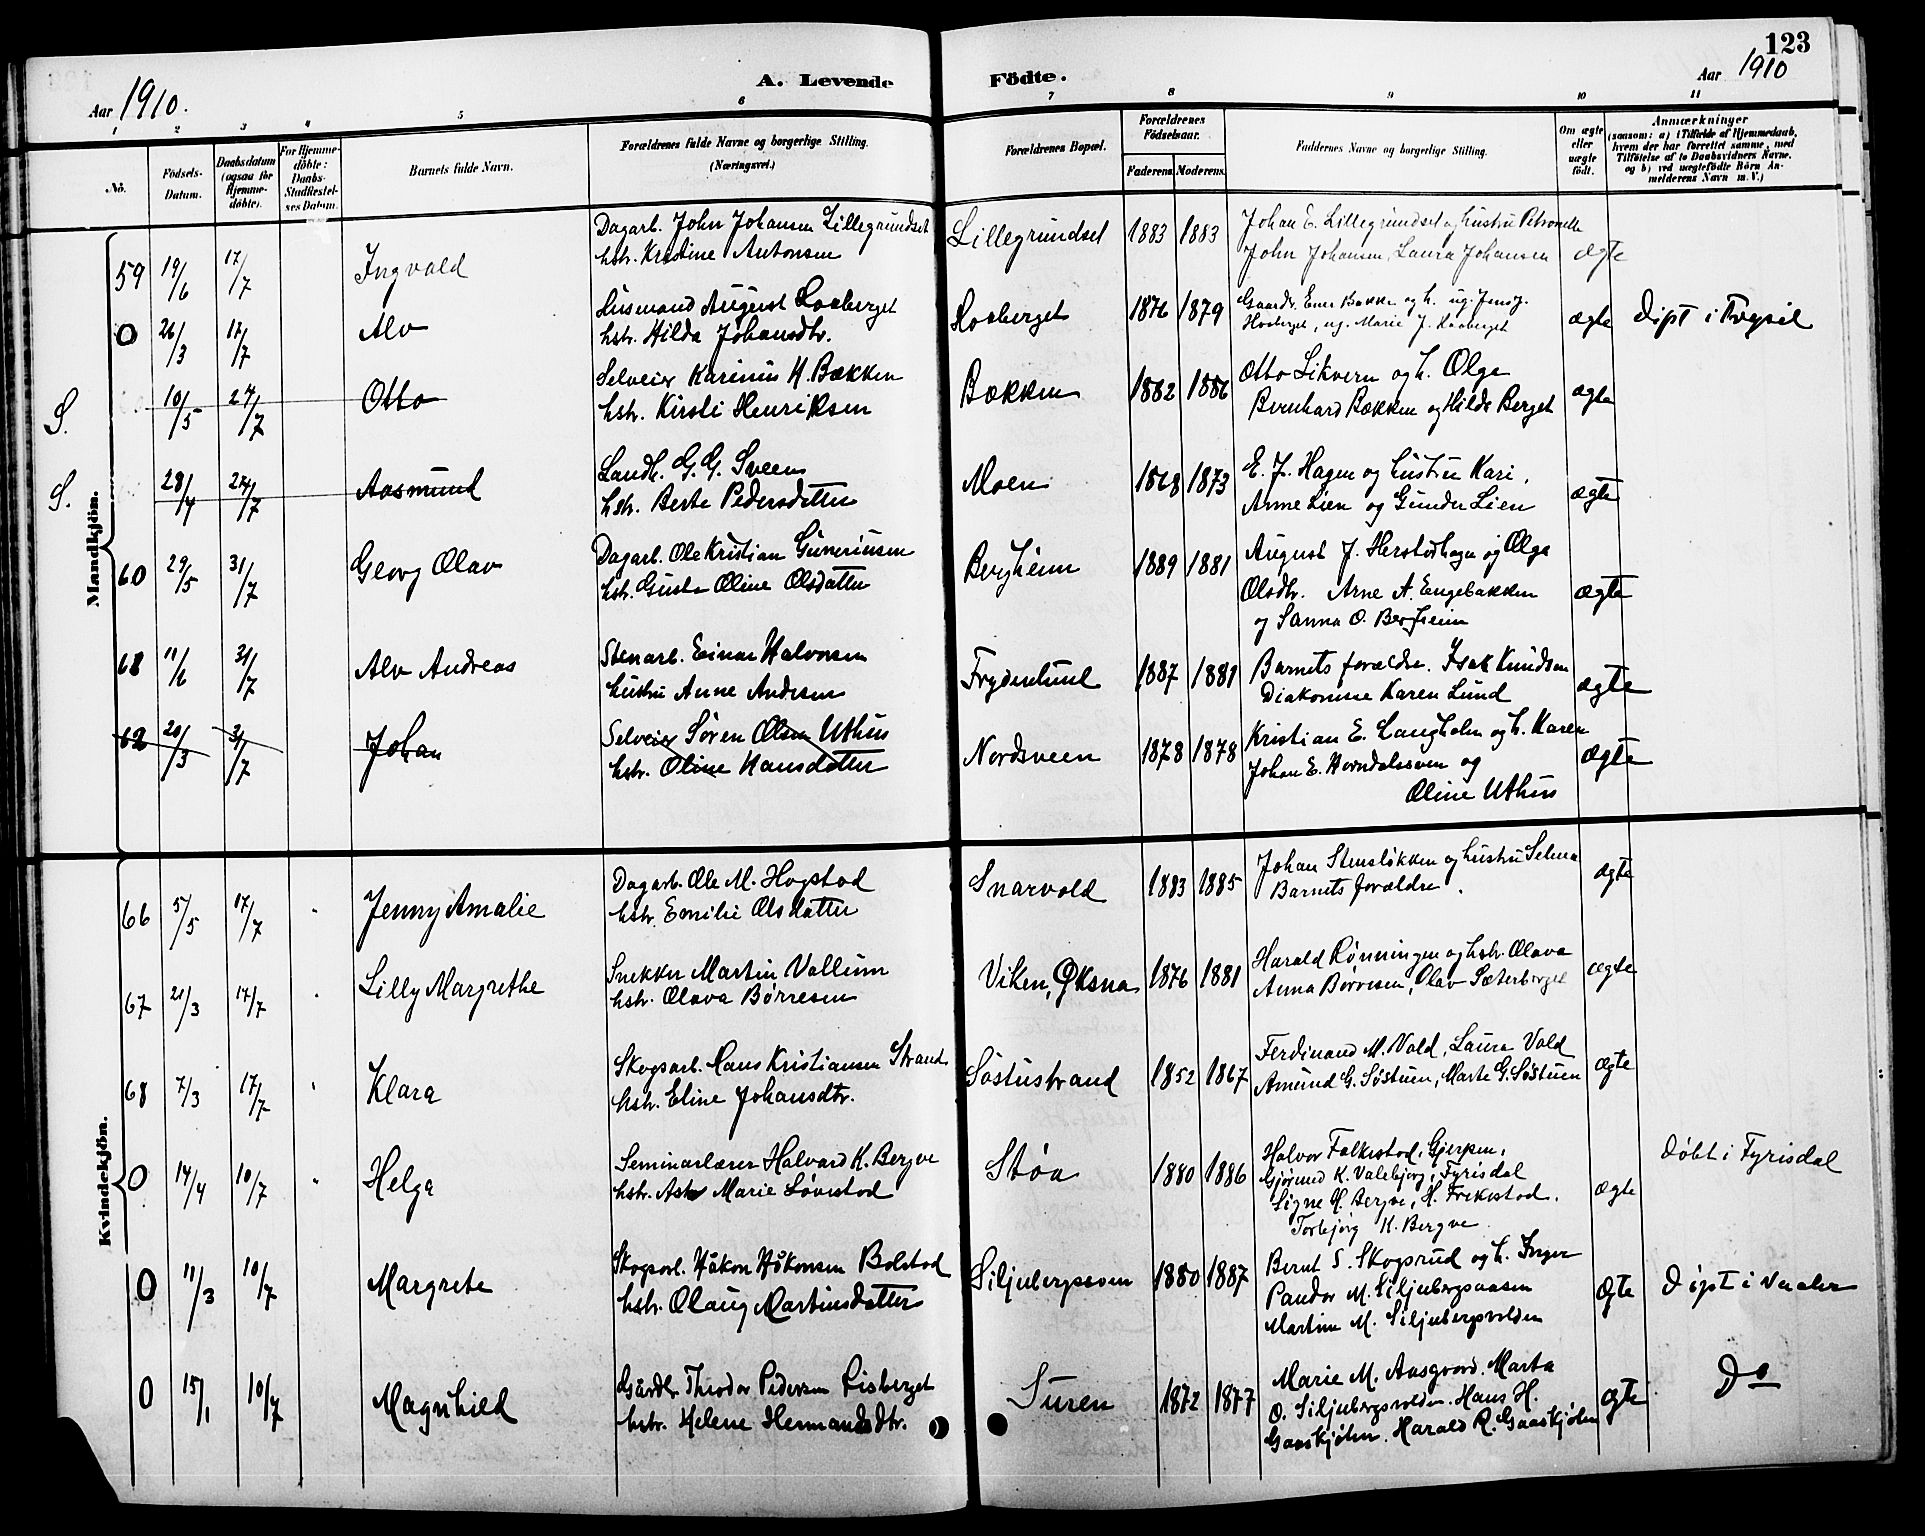 123
Aar 1910.
A. Levende Födte.
Aar 1910
1 2 3 4 5 6 7 8 9 10 11
No.
Födsels-Datum.
Daabsdatum (ogsaa for Hjemme-döbte).
For Hjemme-döbte: Daabs-Stadfæstel-ses Datum.
Barnets fulde Navn.
Forældrenes fulde Navne og borgerlige Stilling.
(Næringsvei.)
Forældrenes Bopæl.
Forældrenes Födselsaar.
Faderens. Moderens.
Faddernes Navne og borgerlige Stilling.
Om ægte eller uægte födt.
Anmærkninger
(saasom: a) i Tilfælde af Hjemmedaab, hvem der har forrettet samme, med Tilföielse af to Daabsvidners Navne, og b) ved uægtefödte Börn Anmelderens Navn m. V.)
Mandkjön.
59 19/6 17/7 Ingvald
Dagarb. John Johansen Lillegrundset
hstr. Kristine Antonsen
Lillegrundset 1883 1883
Johan E. Lillegrundset og hustru Petronelle
John Johansen, Laura Johansen
ægte
0 26/3 17/7 Alv
Husmand August Hoaberget
hstr. Hilda Johansdtr.
Hoaberget 1876 1879
ægte
Døpt i Trysil
S. 10/5 24/7 Otto
Selveier Karinius H. Bækken
hstr. Kirsti Henriksen
Bækken 1882 1886
Otto Likvern og h. Olga
Bernhard Bækken og Hilda Berget
ægte
S. 28/4 24/7 Aasmund
Landh. G. G. Sveen
hstr. Berte Pedersdatter
Moen 1868 1873
E. J. Hagen og hustru Kari,
Arne Lien og Gunder Lien
ægte
60 29/5 31/7 Georg Olav
Dagarb. Ole Kristian Gunerinsen
hstr. Gusta Oline Olsdatter
Bergheim 1889 1881
August J. Herstadhagen og Olga
Olsdtr. Arne A. Engebakken
og Sanna O. Bergheim
ægte
68 11/6 31/7 Alv Andreas
Stenarb. Einar Halvorsen
hustru Anne Andersen
Frydenlund 1887 1881
Barnets forældre. Isak Knudsen
Diakonisse Karen Lund
ægte
62 20/3 31/7 Johan
Selveier Søren Olsen Uthus
hstr. Oline Hansdatter
Nordsveen 1878 1878
Kristian E. Langholm og h. Karen
Johan E. Horndalssven og
Oline Uthus
ægte
Kvindekjön.
66 5/5 17/7 Jenny Amalie
Dagarb. Ole M. Hogstad
hstr. Emilie Olsdatter
Snarvold 1883 1885
Johan Stensløkken og hustru Selma
Barnets forældre.
ægte
67 21/3 17/7 Lilly Margrethe
Snekker Martin Vollum
hstr. Olava Børresen
Viken, Øksna 1876 1881
Harald Rønningen og hstr. Olava
Anna Børresen, Olav Sæterberget
ægte
68 7/3 17/7 Klara
Skogsarb. Hans Kristiansen Strand
hstr. Eline Johansdtr.
Søstustrand 1852 1867
Ferdinand M. Vold, Laura Vold
Amund G. Søstuen, Marte G. Søstuen
ægte
0 14/4 10/7 Helga
Seminarlærer Halvard K. Bergve
hstr. Marie Løvestad
Støa 1880 1886
Halvor Falkestad, Gjerpen,
Gjørund K. Valebjørg, Fyrisdal
Signe H. Bergve, H. Frekestad.
Torbjørg K. Bergve
ægte
Døbt i Fyrisdal
0 11/3 10/7 Margrete
Skogsarb. Håkon Håkonsen Bolstad
hstr. Olaug Martinsdatter
Siljubergsaasen 1880 1887
Bernt S. Skogsrud og h. Inger
Pauder M. Siljubergsaasen
Martin M. Siljubergsvolden
ægte
Døpt i Vaaler
0 15/1 10/7 Magnhild
Gårdbr. Theodor Pedersen Risberget
hstr. Helene Hermandsdtr.
Suren 1872 1877
Marie M. Aasgaard. Marta
O. Siljubergsvolden. Hans H.
Gaaskjølen. Harald R. Gaaskjølen
ægte
Do